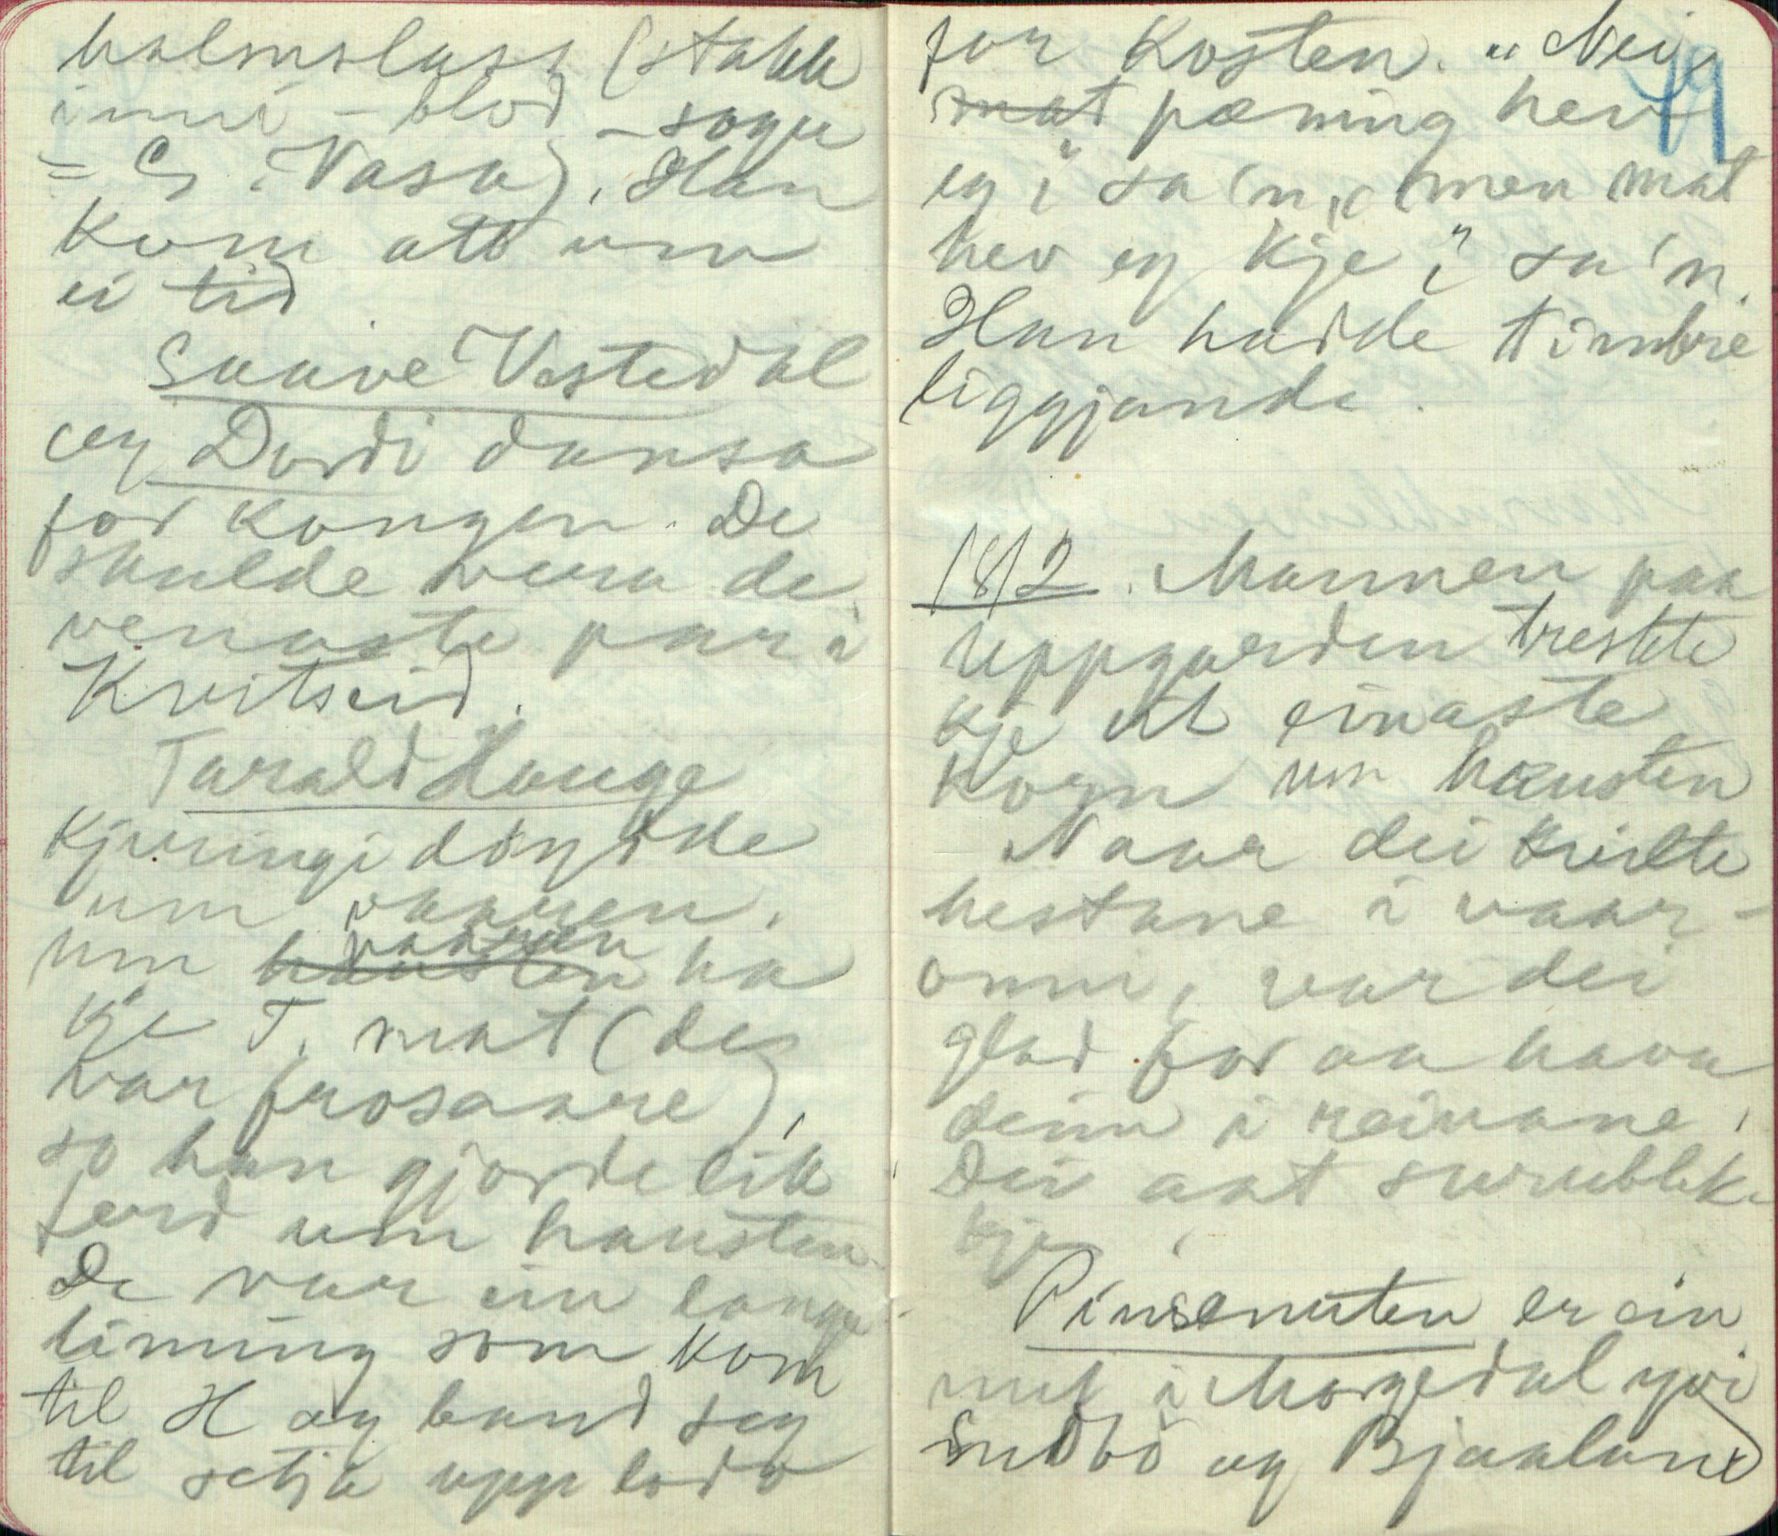 halmslass (stakk
inni - blod - sogu
= G. Vasa). Han
kom att um
ei tid
Saave Vestedal
og Dordi dansa
for kongen. De
skulde vera de
venaste par i
Kvitseid.
Tarald Hauge
Kjeringi döydde
um vaaren.
um hausten vaaren ha
kje T. mat (de
var frosaare),
so han gjorde lik
ferd um hausten.
De var ein langu
timing som kom
til H og baud seg
til setja upp lodo
for kosten. "Nei,
49
mat pæning hev
eg i" sa 'n, "men mat
hev eg kje i" sa 'n.
Han hadde timbre
liggjande.
1812. Mannen paa
Uppgarden treskte
kje eit einaste
korn um hausten
Naar dei kvilte
hestane i vaar-
onni, var dei
glad for aa hava
deim i reinane.
Dei aat surublikk
kje.
Pinsenuten er ein
nut i Morgedal yvi
Sudbö og Bjaaland